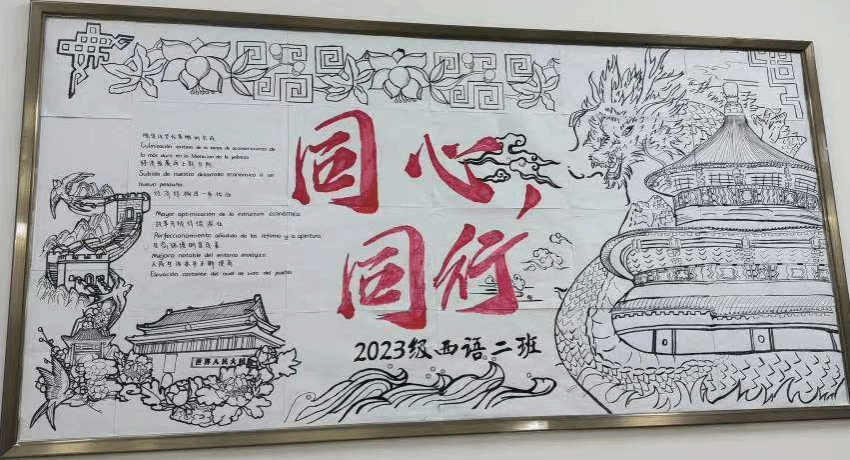 同心,
同行
2023级西语二班
脱贫攻坚战取得
Culminación exitosa de la tarea de acometimiento de
lo más duro en la liberación de la pobreza
经济发展再上新台阶
Subida de nuestro desarrollo económico a un
nuevo peldaño
经济结构进一步优化
Mayor optimización de la estructura económica
改革开放持续深化
Perfeccionamiento añadido de la reforma y la apertura
生态环境明显改善
Mejora notable del entorno ecológico
人民生活水平不断提高
Elevación constante del nivel de vida del pueblo
世界人民大